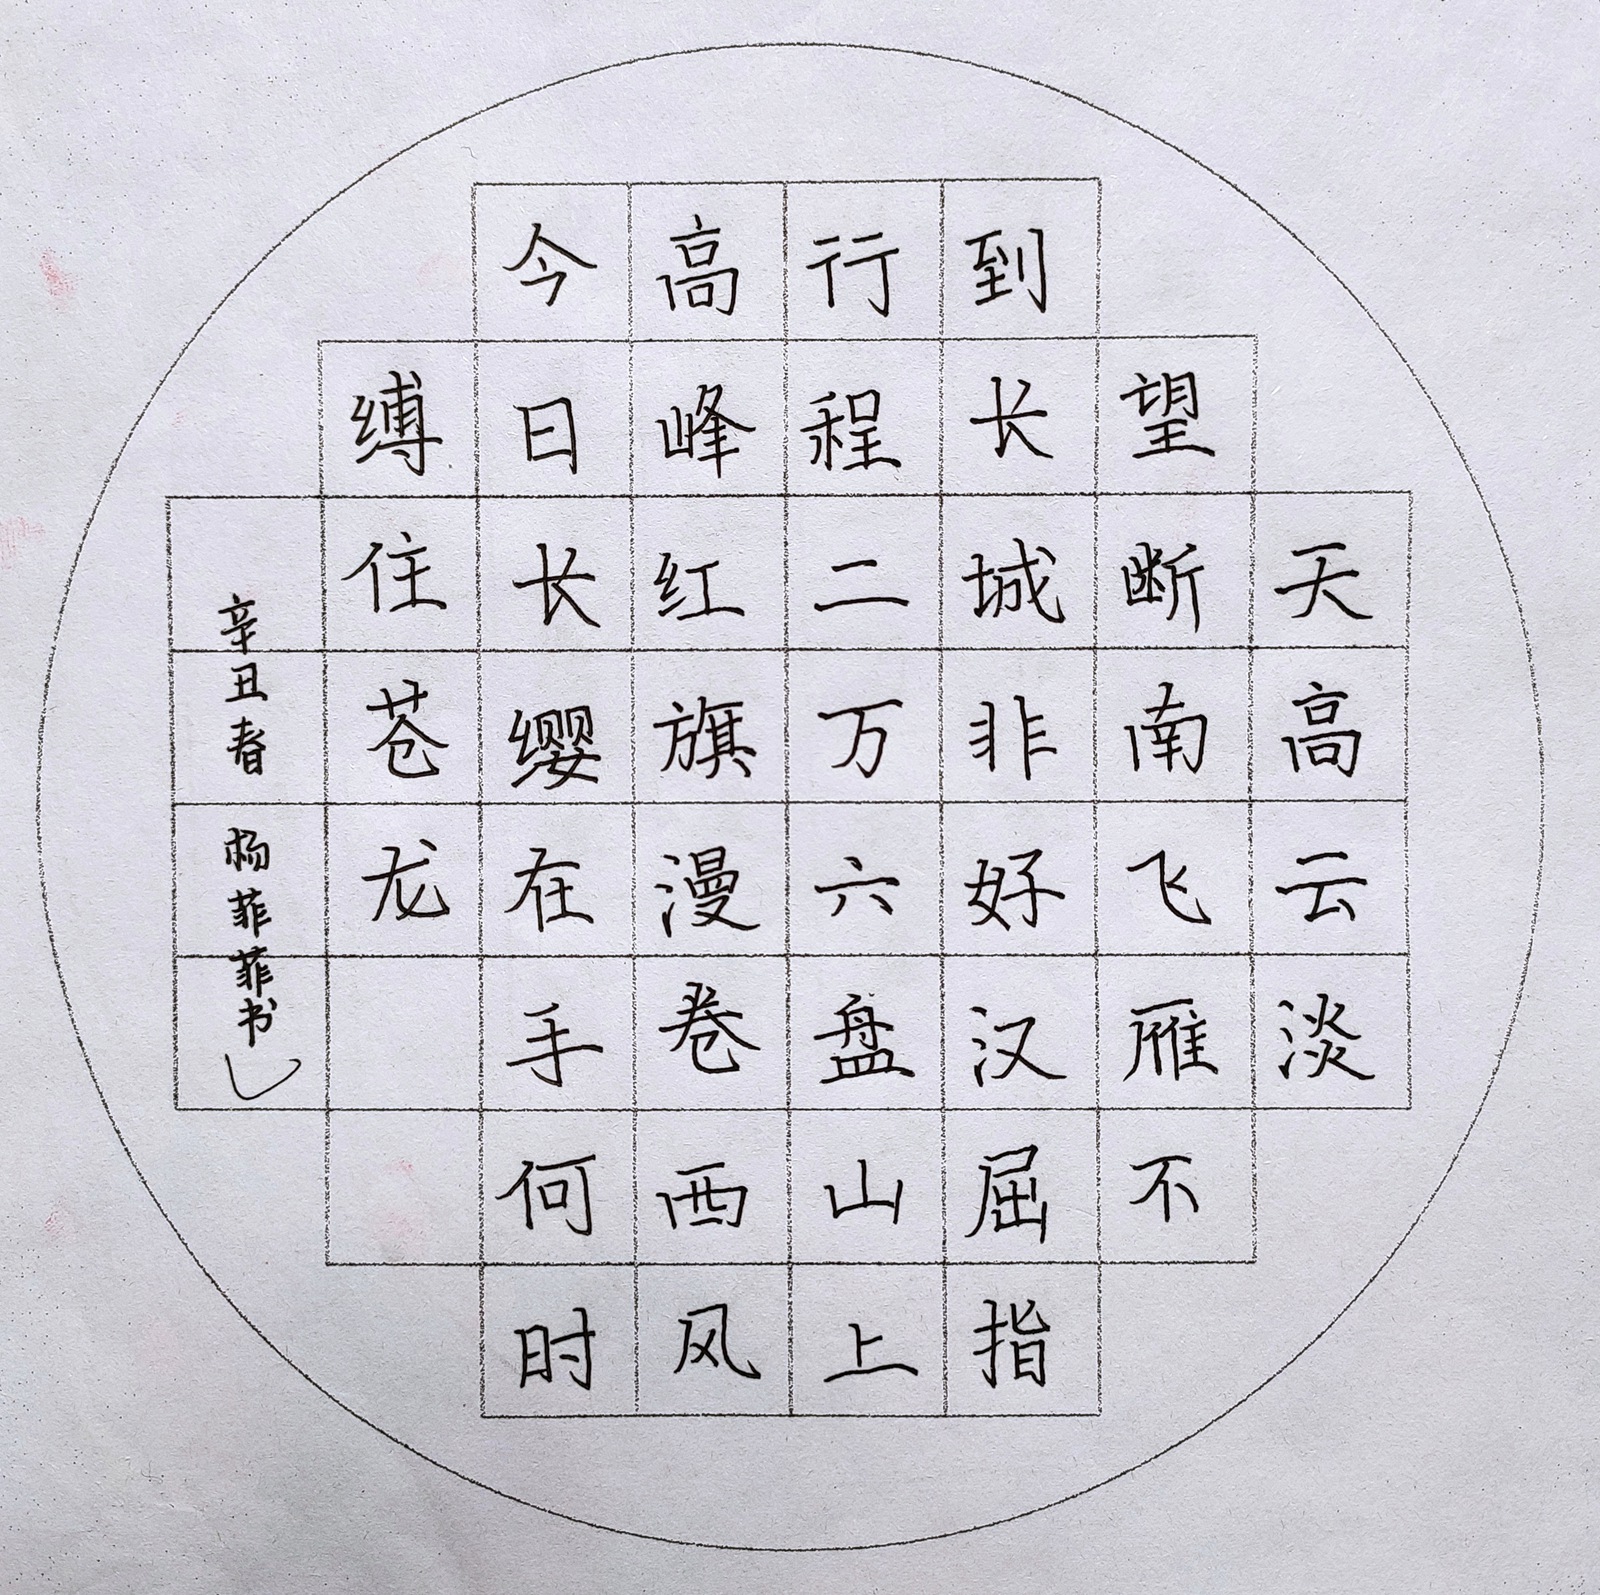 天高云淡
望断南飞雁不
到长城非好汉屈指
行程二万六盘山上
高峰红旗漫卷西风
今日长缨在手何时
缚住苍龙
辛丑春 杨菲菲书